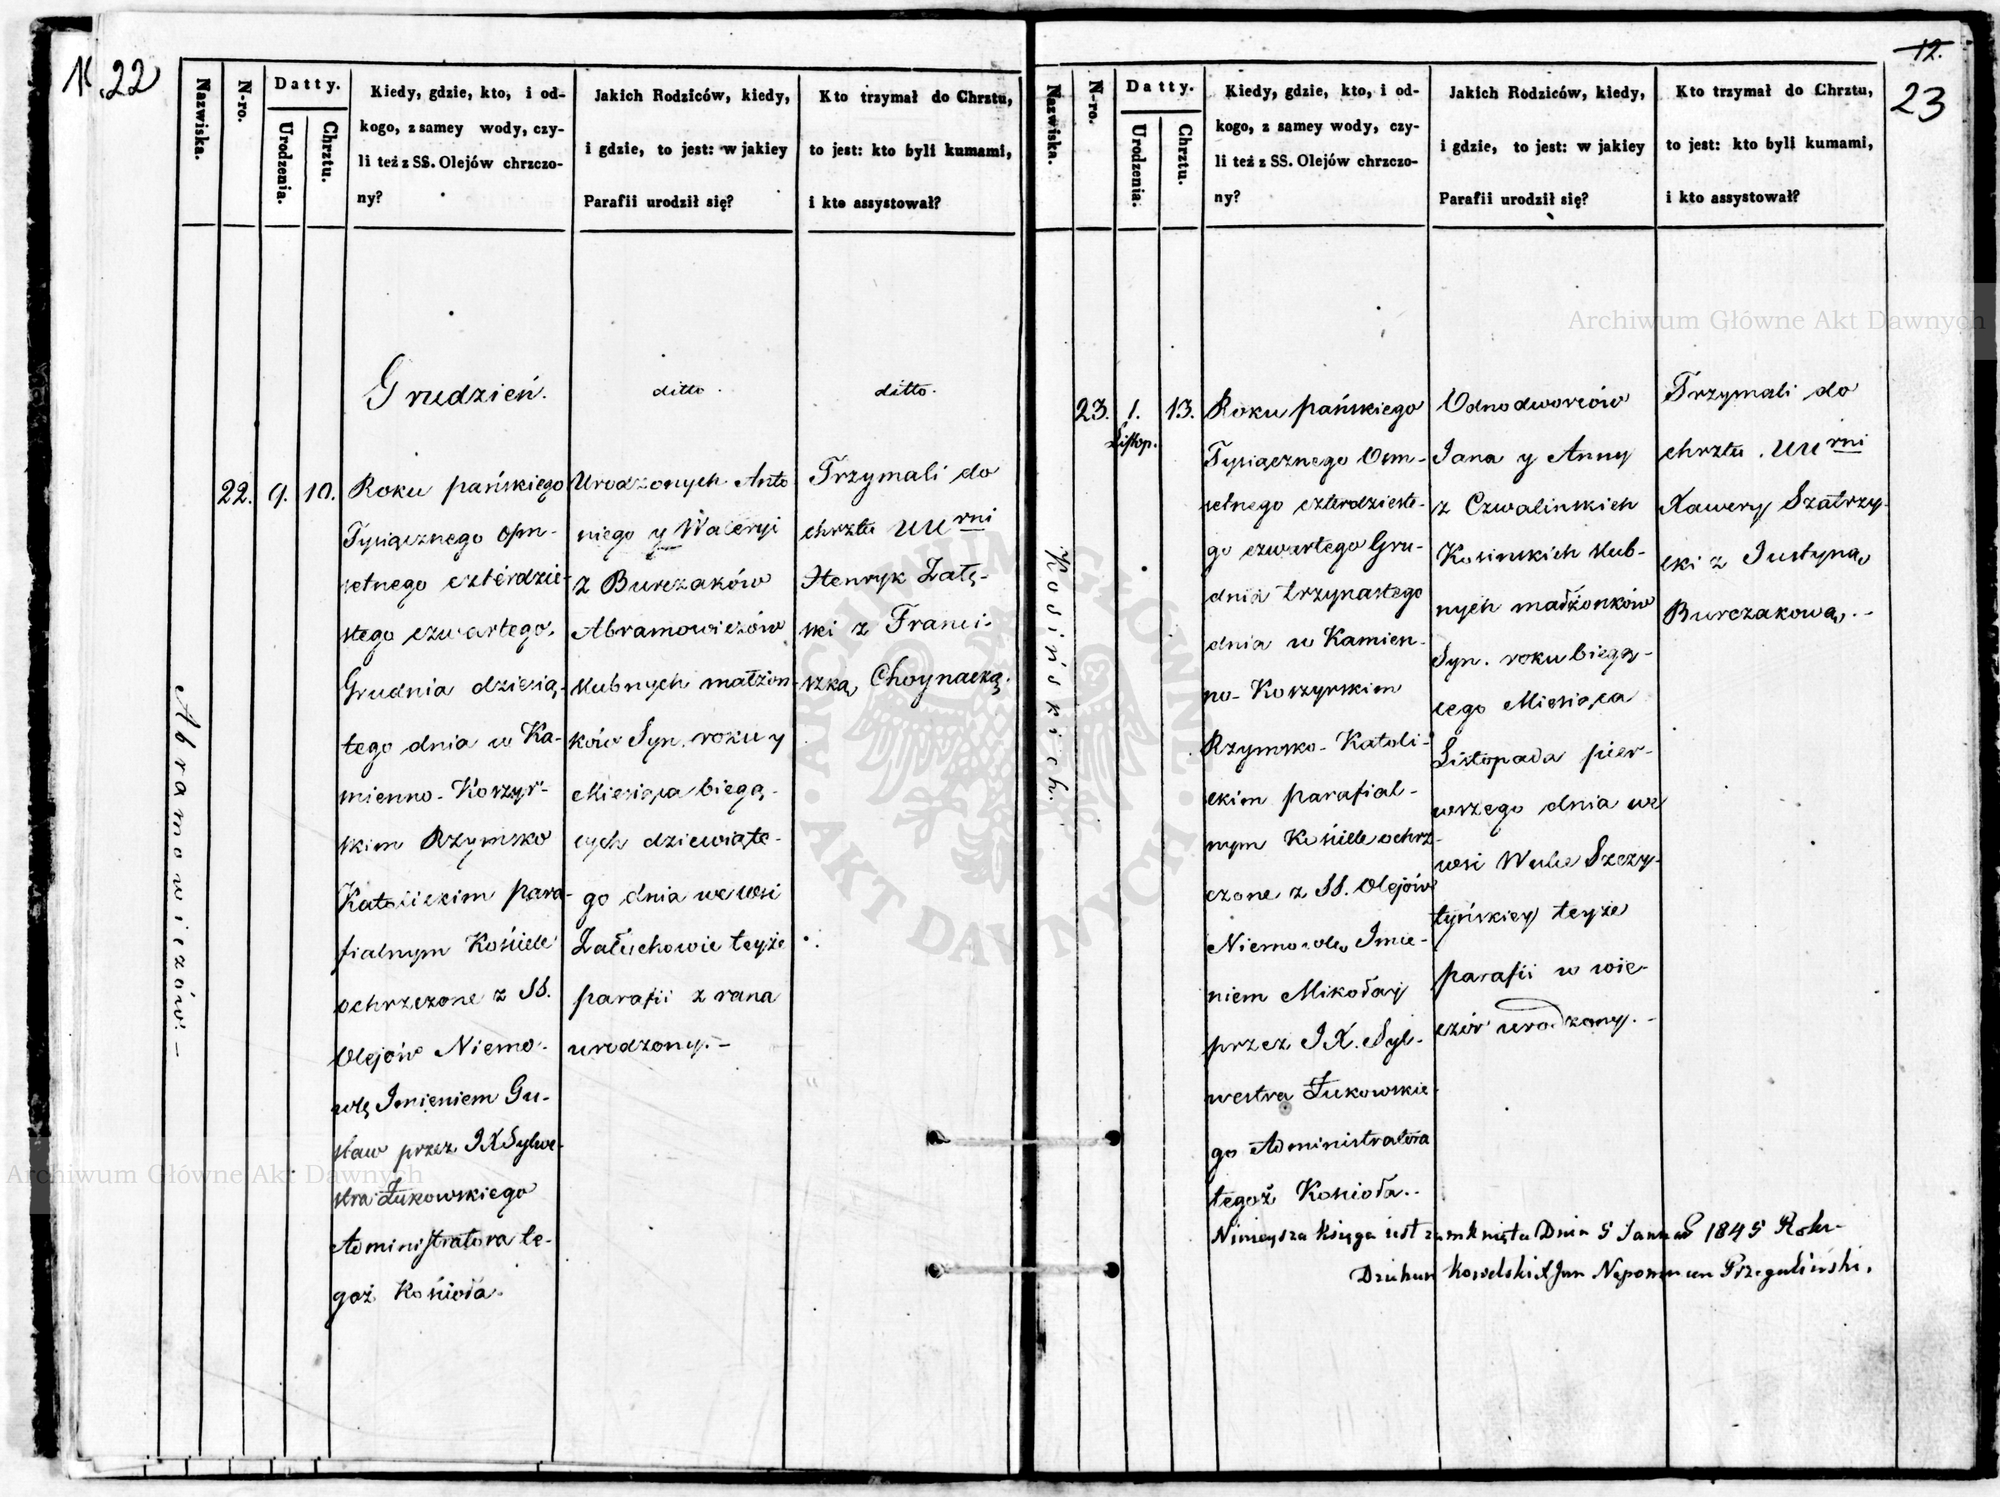 N. 22
Nazwiska.
N-ro.
Datty.
Urodzenia.
Chrztu.
Kiedy, gdzie, kto, i od-
kogo, z samey wody, czy-
li też z SS. Olejów chrzczo-
ny?
Jakich Rodziców, kiedy,
i gdzie, to jest: w jakiey
Parafii urodził się?
Kto trzymał do Chrztu,
to jest: kto byli kumami,
i kto assystował?
Grudzień.
ditto.
ditto.
Abramowiczów. –
22.
9.
10.
Roku pańskiego
Tysiącznego Ośm-
setnego czterdzie-
stego czwartego.
Grudnia dziesią-
tego dnia w Ka-
mienno-Koszyr-
skim Rzymsko
Katolickim para-
fialnym Kościele
ochrzczone z SS.
Olejów Niemo-
wlę Imieniem Gu-
staw przez JX Sylwe-
stra Żukowskiego
Administratora te-
goż Kościoła.
Urodzonych Anto
niego y Waleryi
z Burczaków
Abramowiczów
slubnych małżon-
ków Syn. roku y
Miesiąca biegą-
cych dziewiąte-
go dnia we wsi
Załuchowie teyże
parafii z rana
urodzony. –
Trzymali do
chrztu UU rni
Henryk Załę-
ski z Franci-
szką Choynacką.
12.
23
Nazwiska.
N-ro.
Datty.
Urodzenia.
Chrztu.
Kiedy, gdzie, kto, i od-
kogo, z samey wody, czy-
li też z SS. Olejów chrzczo-
ny?
Jakich Rodziców, kiedy,
i gdzie, to jest: w jakiey
Parafii urodził się?
Kto trzymał do Chrztu,
to jest: kto byli kumami,
i kto assystował?
Kosińskich.
23.
1.
Listop.
13.
Roku pańskiego
Tysiącznego Ośm-
setnego czterdzieste-
go czwartego Gru-
dnia trzynastego
dnia w Kamien-
no-Koszyrskim
Rzymsko-Katoli-
ckim parafial-
nym Kościele ochrz-
czone z SS. Olejów
Niemowle Imie-
niem Mikołay
przez JX. Syl-
westra Żukowskie-
go Administratora
tegoż Kościoła..
Odnodworców
Jana y Anny
z Czwalinskich
Kosinskich slub-
nych małżonków
Syn. roku biegą-
cego Miesiąca
Listopada pier-
wszego dnia we
wsi Wulce Szczy-
tyńskiey teyże
parafii w wie-
czór urodzony. –
Trzymali do
chrztu. UU rni
Xawery Szatrzy-
cki z Justyną
Burczakową. –
Ninieysza Księga iest zamknięta Dnia 5 Januar 1845 Roku
Dziekan Kowelski X Jan Nepomucen Przegaliński.
Archiwum Główne Akt Dawnych
Archiwum Główne Akt Dawnych
ARCHIWUM GŁÓWNE · AKT DAWNYCH ·